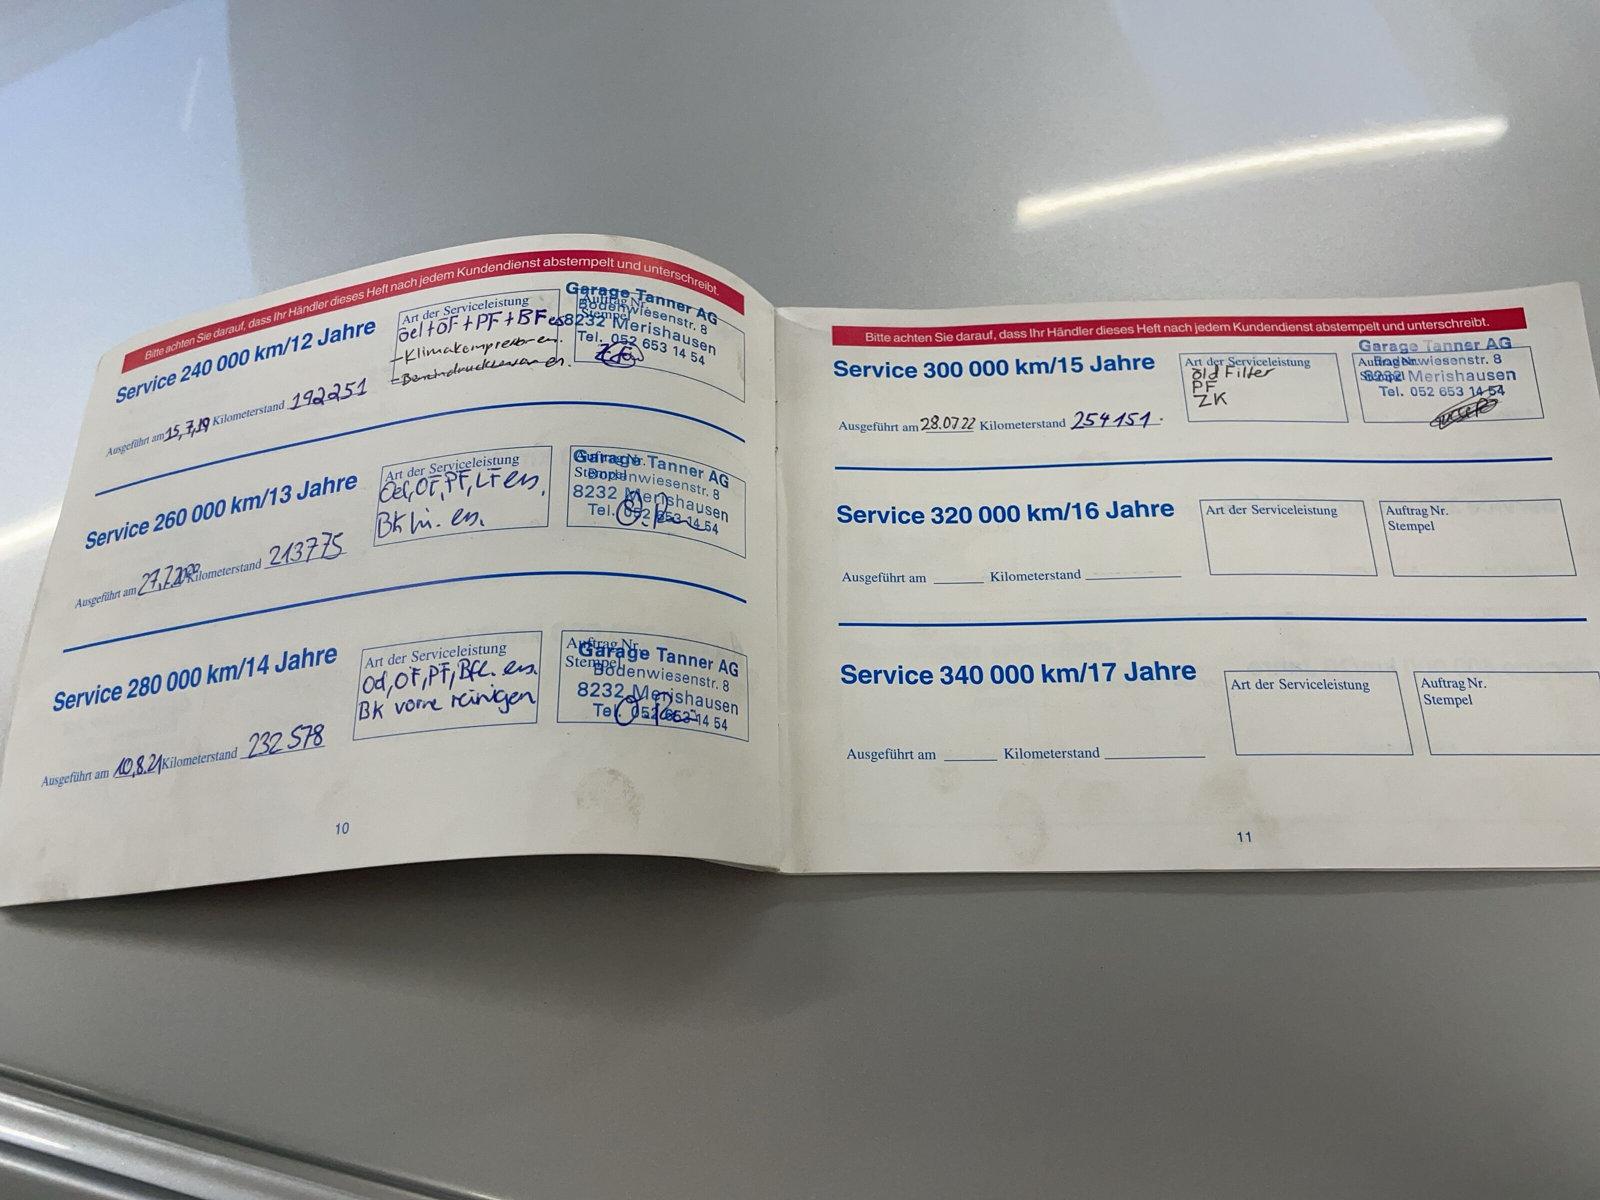 Bitte achten Sie darauf, dass Ihr Händler dieses Heft nach jedem Kundendienst abstempelt und unterschreibt.
Service 240 000 km/12 Jahre
Art der Serviceleistung
oel+OF+PF+BF es
-Klimakompressor en.
Auftrag Nr.
Stempel
Garage Tanner AG
Bodenwiesenstr. 8
8232 Merishausen
Tel. 052 653 14 54
Ausgeführt am 15,7,19 Kilometerstand 192251
Service 260 000 km/13 Jahre
Art der Serviceleistung
Oel,OF,PF,LF ers.
BK hi. ers.
Auftrag Nr.
Stempel
Garage Tanner AG
Bodenwiesenstr. 8
8232 Merishausen
Tel. 052 653 14 54
Ausgeführt am 27,7,2020 Kilometerstand 213775
Service 280 000 km/14 Jahre
Art der Serviceleistung
Oel,OF,PF, ers.
BK vorne reinigen
Auftrag Nr.
Stempel
Garage Tanner AG
Bodenwiesenstr. 8
8232 Merishausen
Tel. 052 653 14 54
Ausgeführt am 10,8.21 Kilometerstand 232 578
10
Bitte achten Sie darauf, dass Ihr Händler dieses Heft nach jedem Kundendienst abstempelt und unterschreibt.
Service 300 000 km/15 Jahre
Art der Serviceleistung
öl d Filter
PF
ZK
Auftrag Nr.
Stempel
Garage Tanner AG
Bodenwiesenstr. 8
8232 Merishausen
Tel. 052 653 14 54
Ausgeführt am 28.07.22 Kilometerstand 254151.
Service 320 000 km/16 Jahre
Art der Serviceleistung
Auftrag Nr.
Stempel
Ausgeführt am Kilometerstand
Service 340 000 km/17 Jahre
Art der Serviceleistung
Auftrag Nr.
Stempel
Ausgeführt am Kilometerstand
11